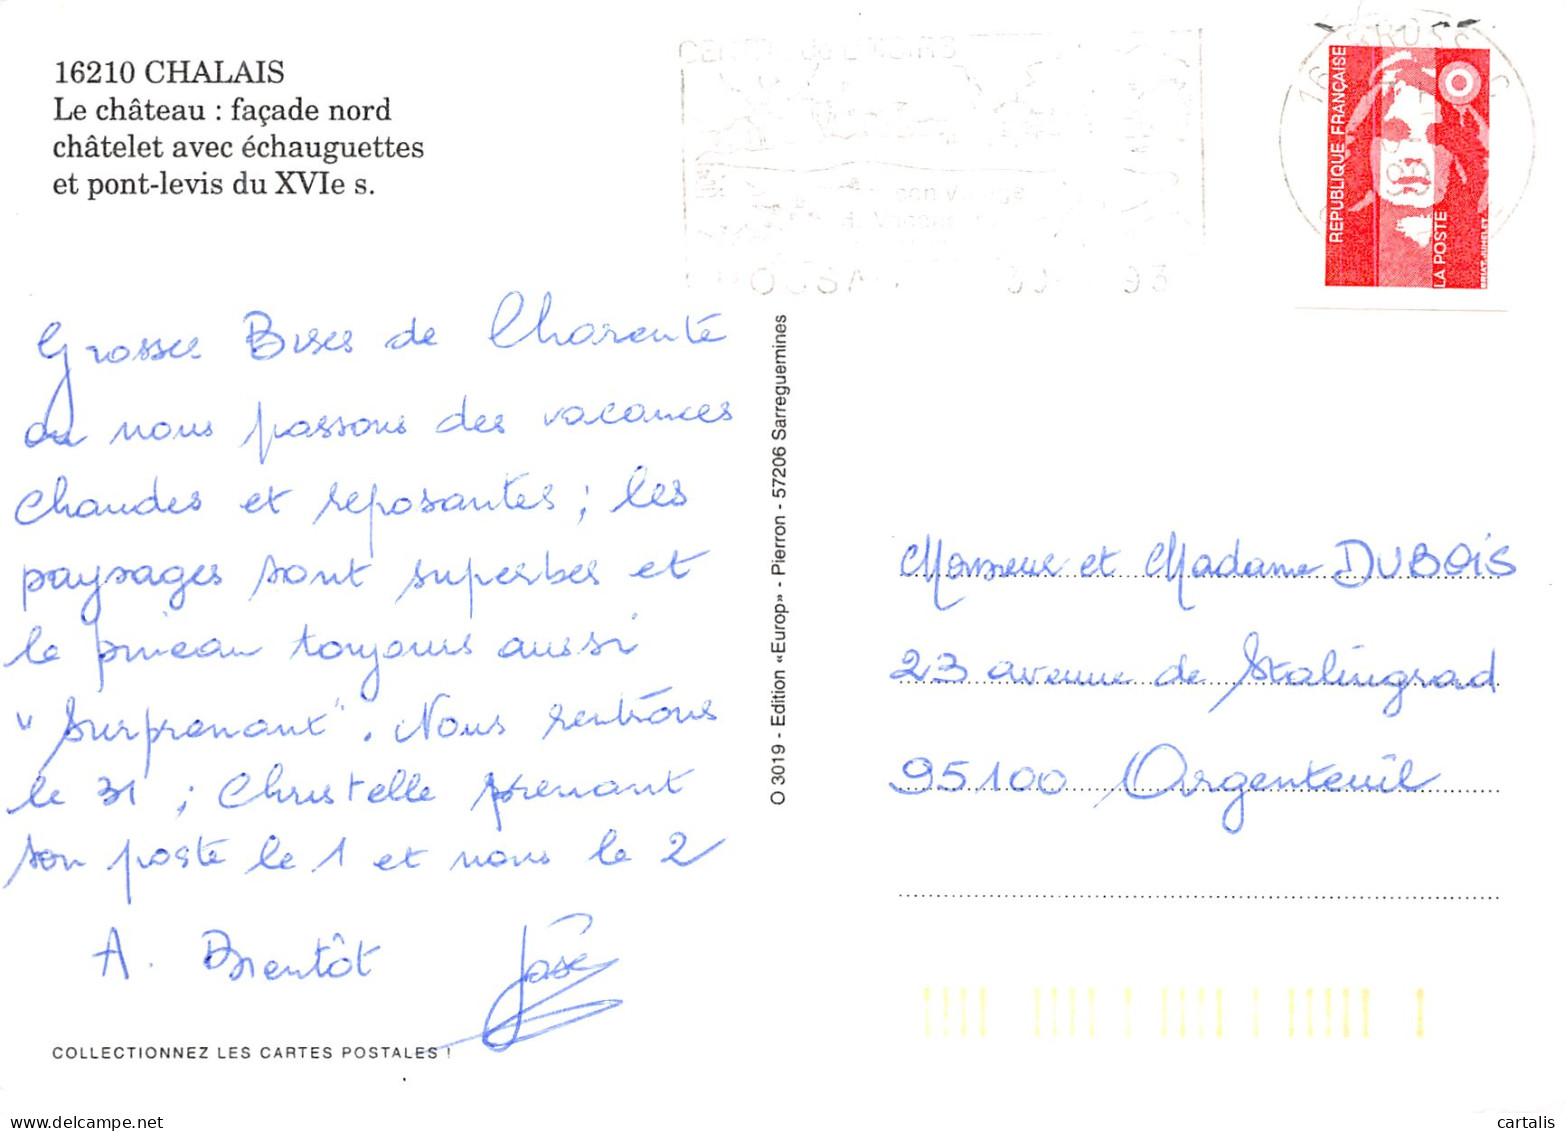 16210 CHALAIS
Le château : façade nord
châtelet avec échauguettes
et pont-levis du XVIe s.
RÉPUBLIQUE FRANÇAISE
LA POSTE
Grosses Bises de Charente
où nous passons des vacances
chaudes et reposantes ; les
paysages sont superbes et
le pineau toujours aussi
"surprenant". Nous rentrons
le 31 ; Christelle prenant
son poste le 1 et nous le 2
A. Bientôt
José
O 3019 - Edition «Europ» - Pierron - 57206 Sarreguemines
Monsieur et Madame DUBOIS
23 avenue de Stalingrad
95100 Argenteuil
COLLECTIONNEZ LES CARTES POSTALES !
www.delcampe.net
cartalis